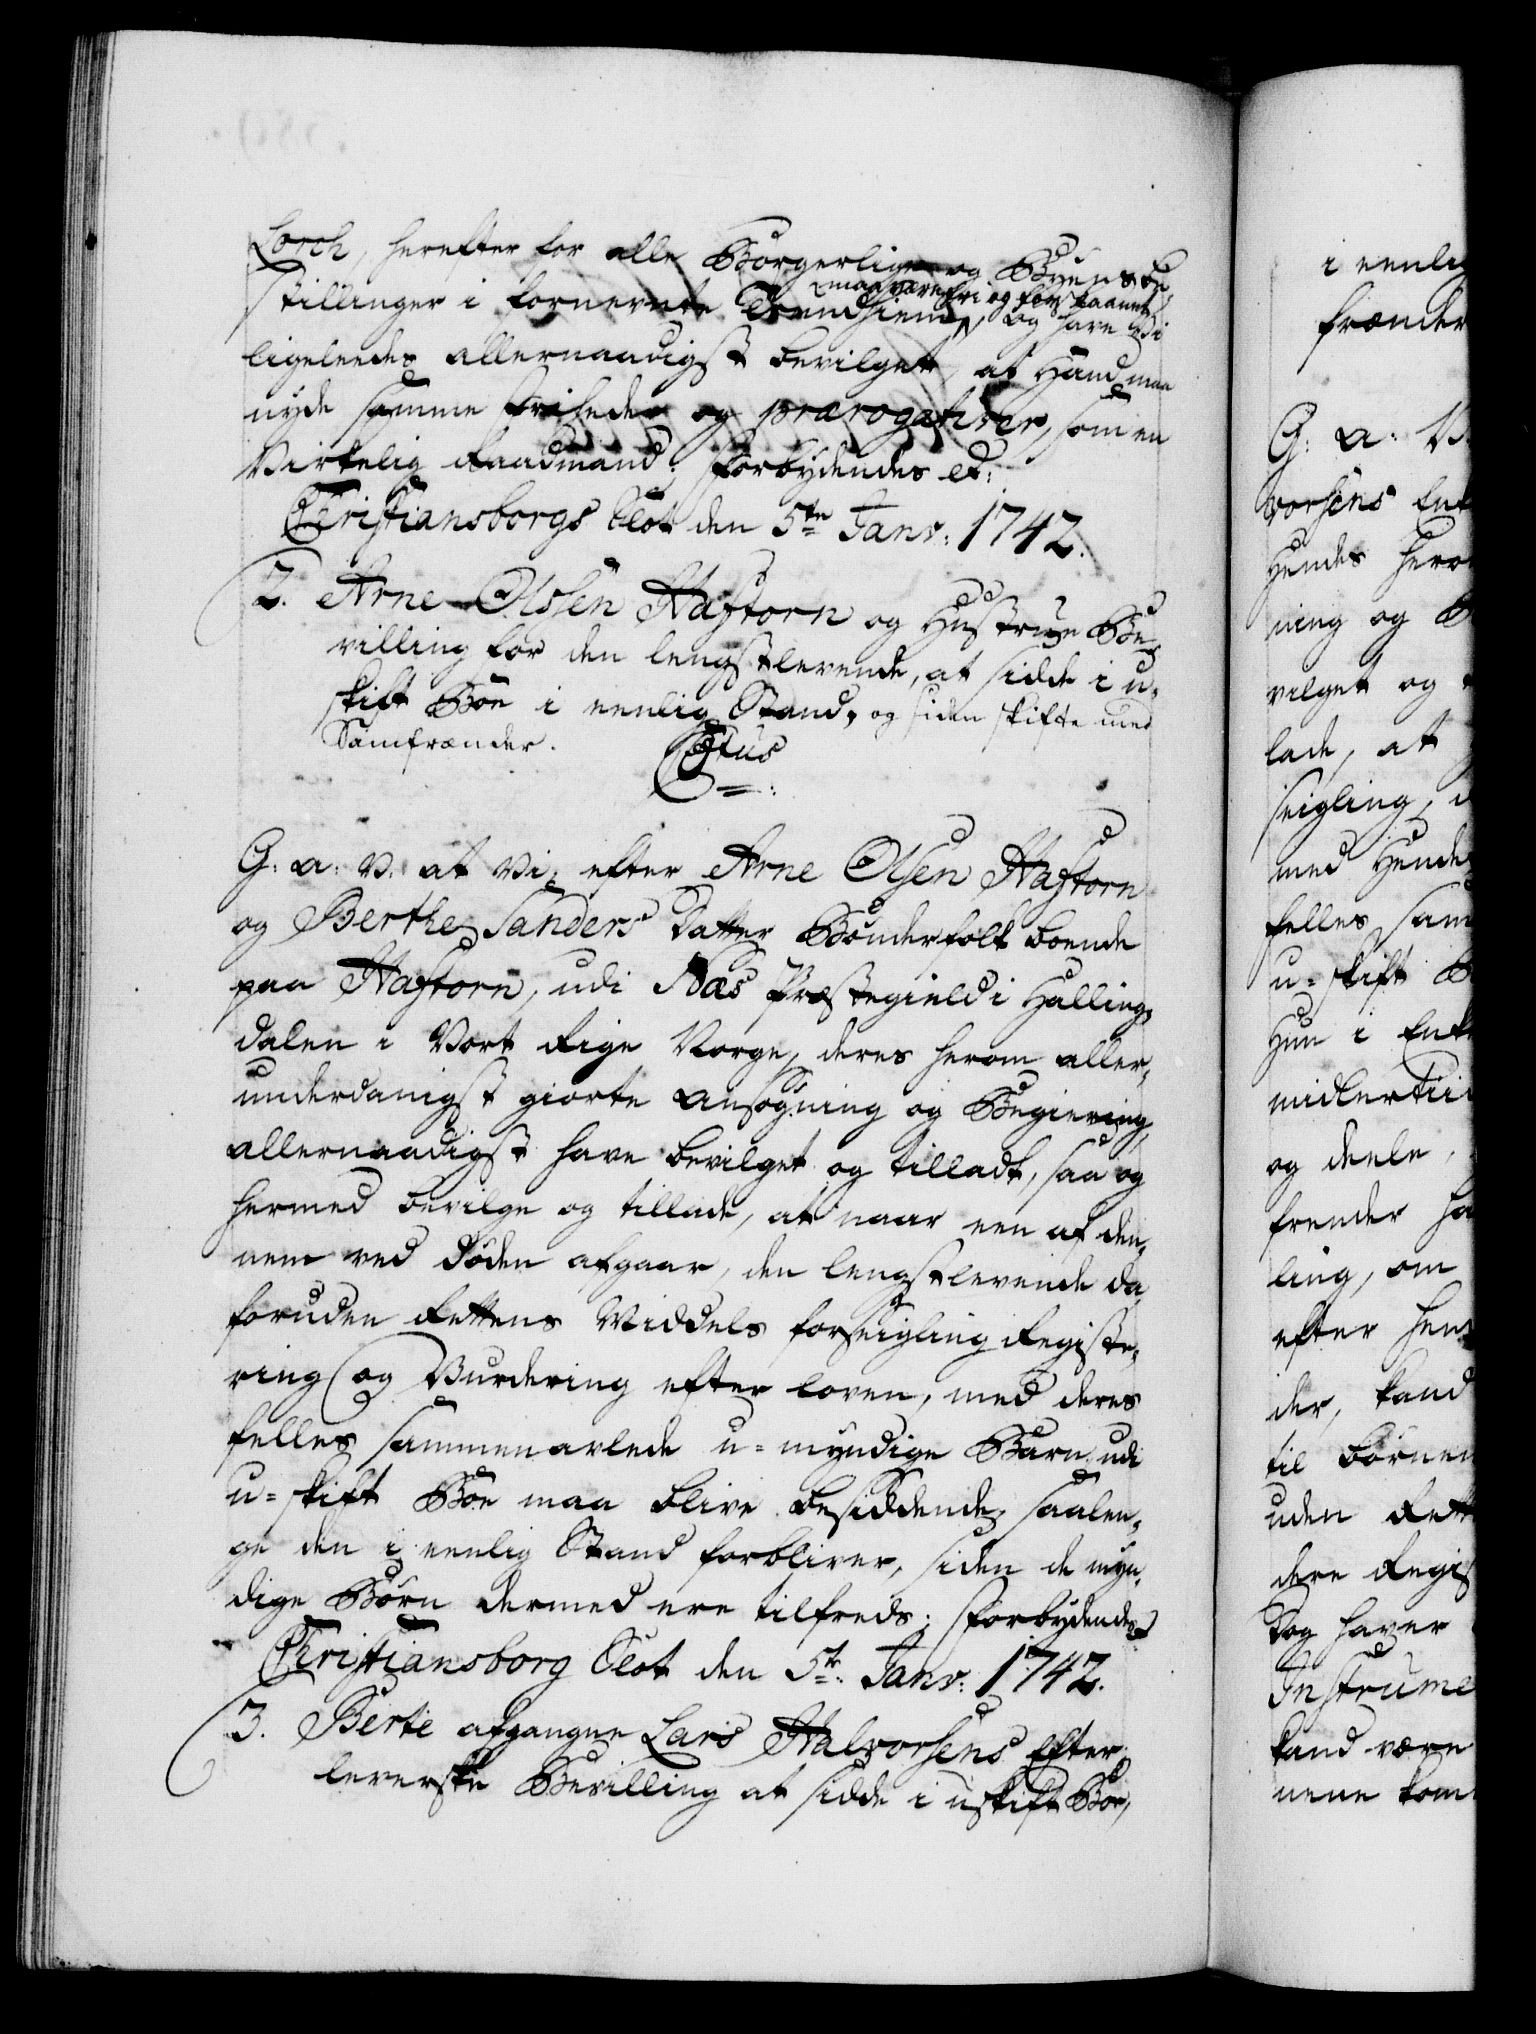 Lorch, herefter for alle Borgerlige og Byens be-
stillinger i fornevnte Trondhiem, maa være fri og forskaanet, og have Vi
ligeleedes allernaadigst bevilget, at Hand maa
nyde samme friheder og prærogativer, som en
Virkelig Raadmand; Forbydendes etc:
Christiansborgs Slot den 5te Janv: 1742.
2. Arne Olssen Haftorn og Hustrue Be-
villing for den lengstlevende, at sidde i u-
skift Boe i eenlig Stand, og siden skifte med
Samfrænder.
C 5tus
G: a: V: at Vi, efter Arne Olsen Haftorn
og Berthe Sanders Datter Bønderfolk boende
paa Haftorn, udi Næs Præstegield i Halling-
dalen i Vort Rige Norge, deres herom aller-
underdanigst giorte Ansøgning og Begiering,
allernaadigst have bevilget og tilladt, saa og
hermed bevilge og tillade, at naar een af den-
nem ved Døden afgaar, den lengstlevende da
foruden Rettens Middels forseigling Registe-
ring og Vurdering efter loven, med deres
felles sammenavlede u-myndige Børn udi
u-skift Boe maa blive besiddende, saalen-
ge den i eenlig Stand forbliver, siden de myn-
dige Børn dermed ere tilfreds; Forbydendes
Christiansborg Slot den 5te Janv: 1742.
3. Berte afgangne Lars Halvorsens Efter-
leverske Bevilling at sidde i uskift Boe,
i eenlig
frænder
G: a: V:
vorsens Ent
Hendes herom
ning og B
vilget og
lade, at
seigling,
med Hendes
felles sam
u-skift B
Hun i Enke
midlertiid
og deele,
frender
ling, om
efter hen
der, kand
til børnen
uden Rett
dere Regis
Dog haver
Instrume
kand være
nene kom